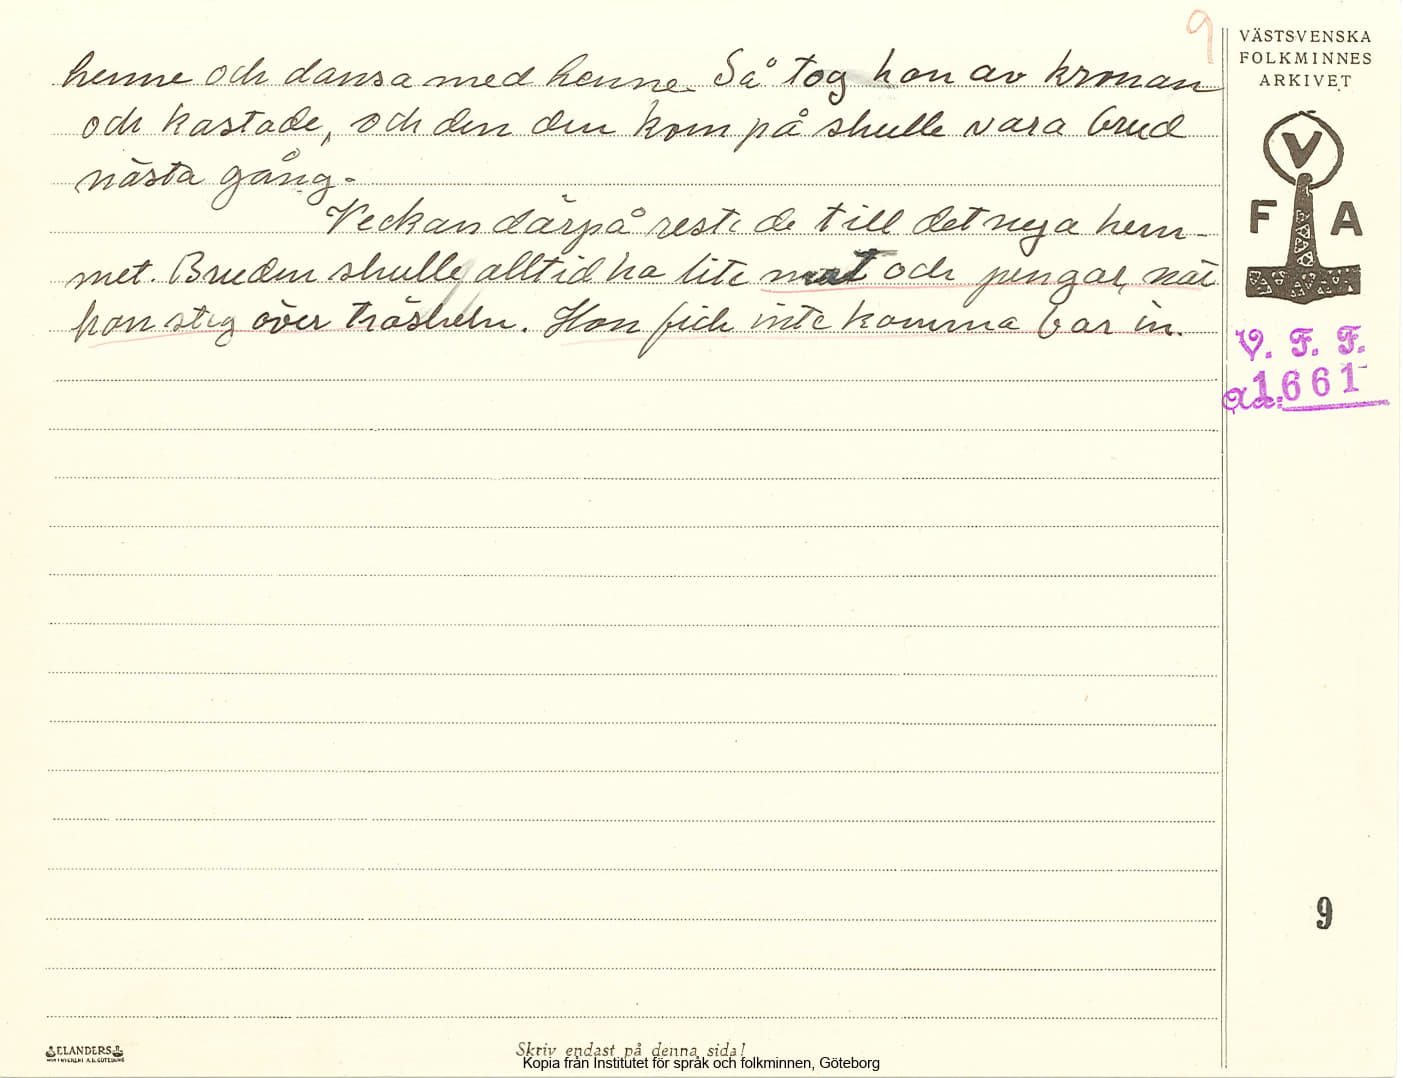 9
VÄSTSVENSKA
FOLKMINNES
ARKIVET
henne och dansa med henne. Så tog hon av kronan
och kastade, och den den kom på skulle vara brud
nästa gång.
Veckan därpå reste de till det nya hem-
met. Bruden skulle alltid ha lite mat och pengar, när
hon steg över tröskeln. Hon fick inte komma bar in.
V
F A
V. F. F.
1661
9
ELANDERS
Skriv endast på denna sida!
Kopia från Institutet för språk och folkminnen, Göteborg